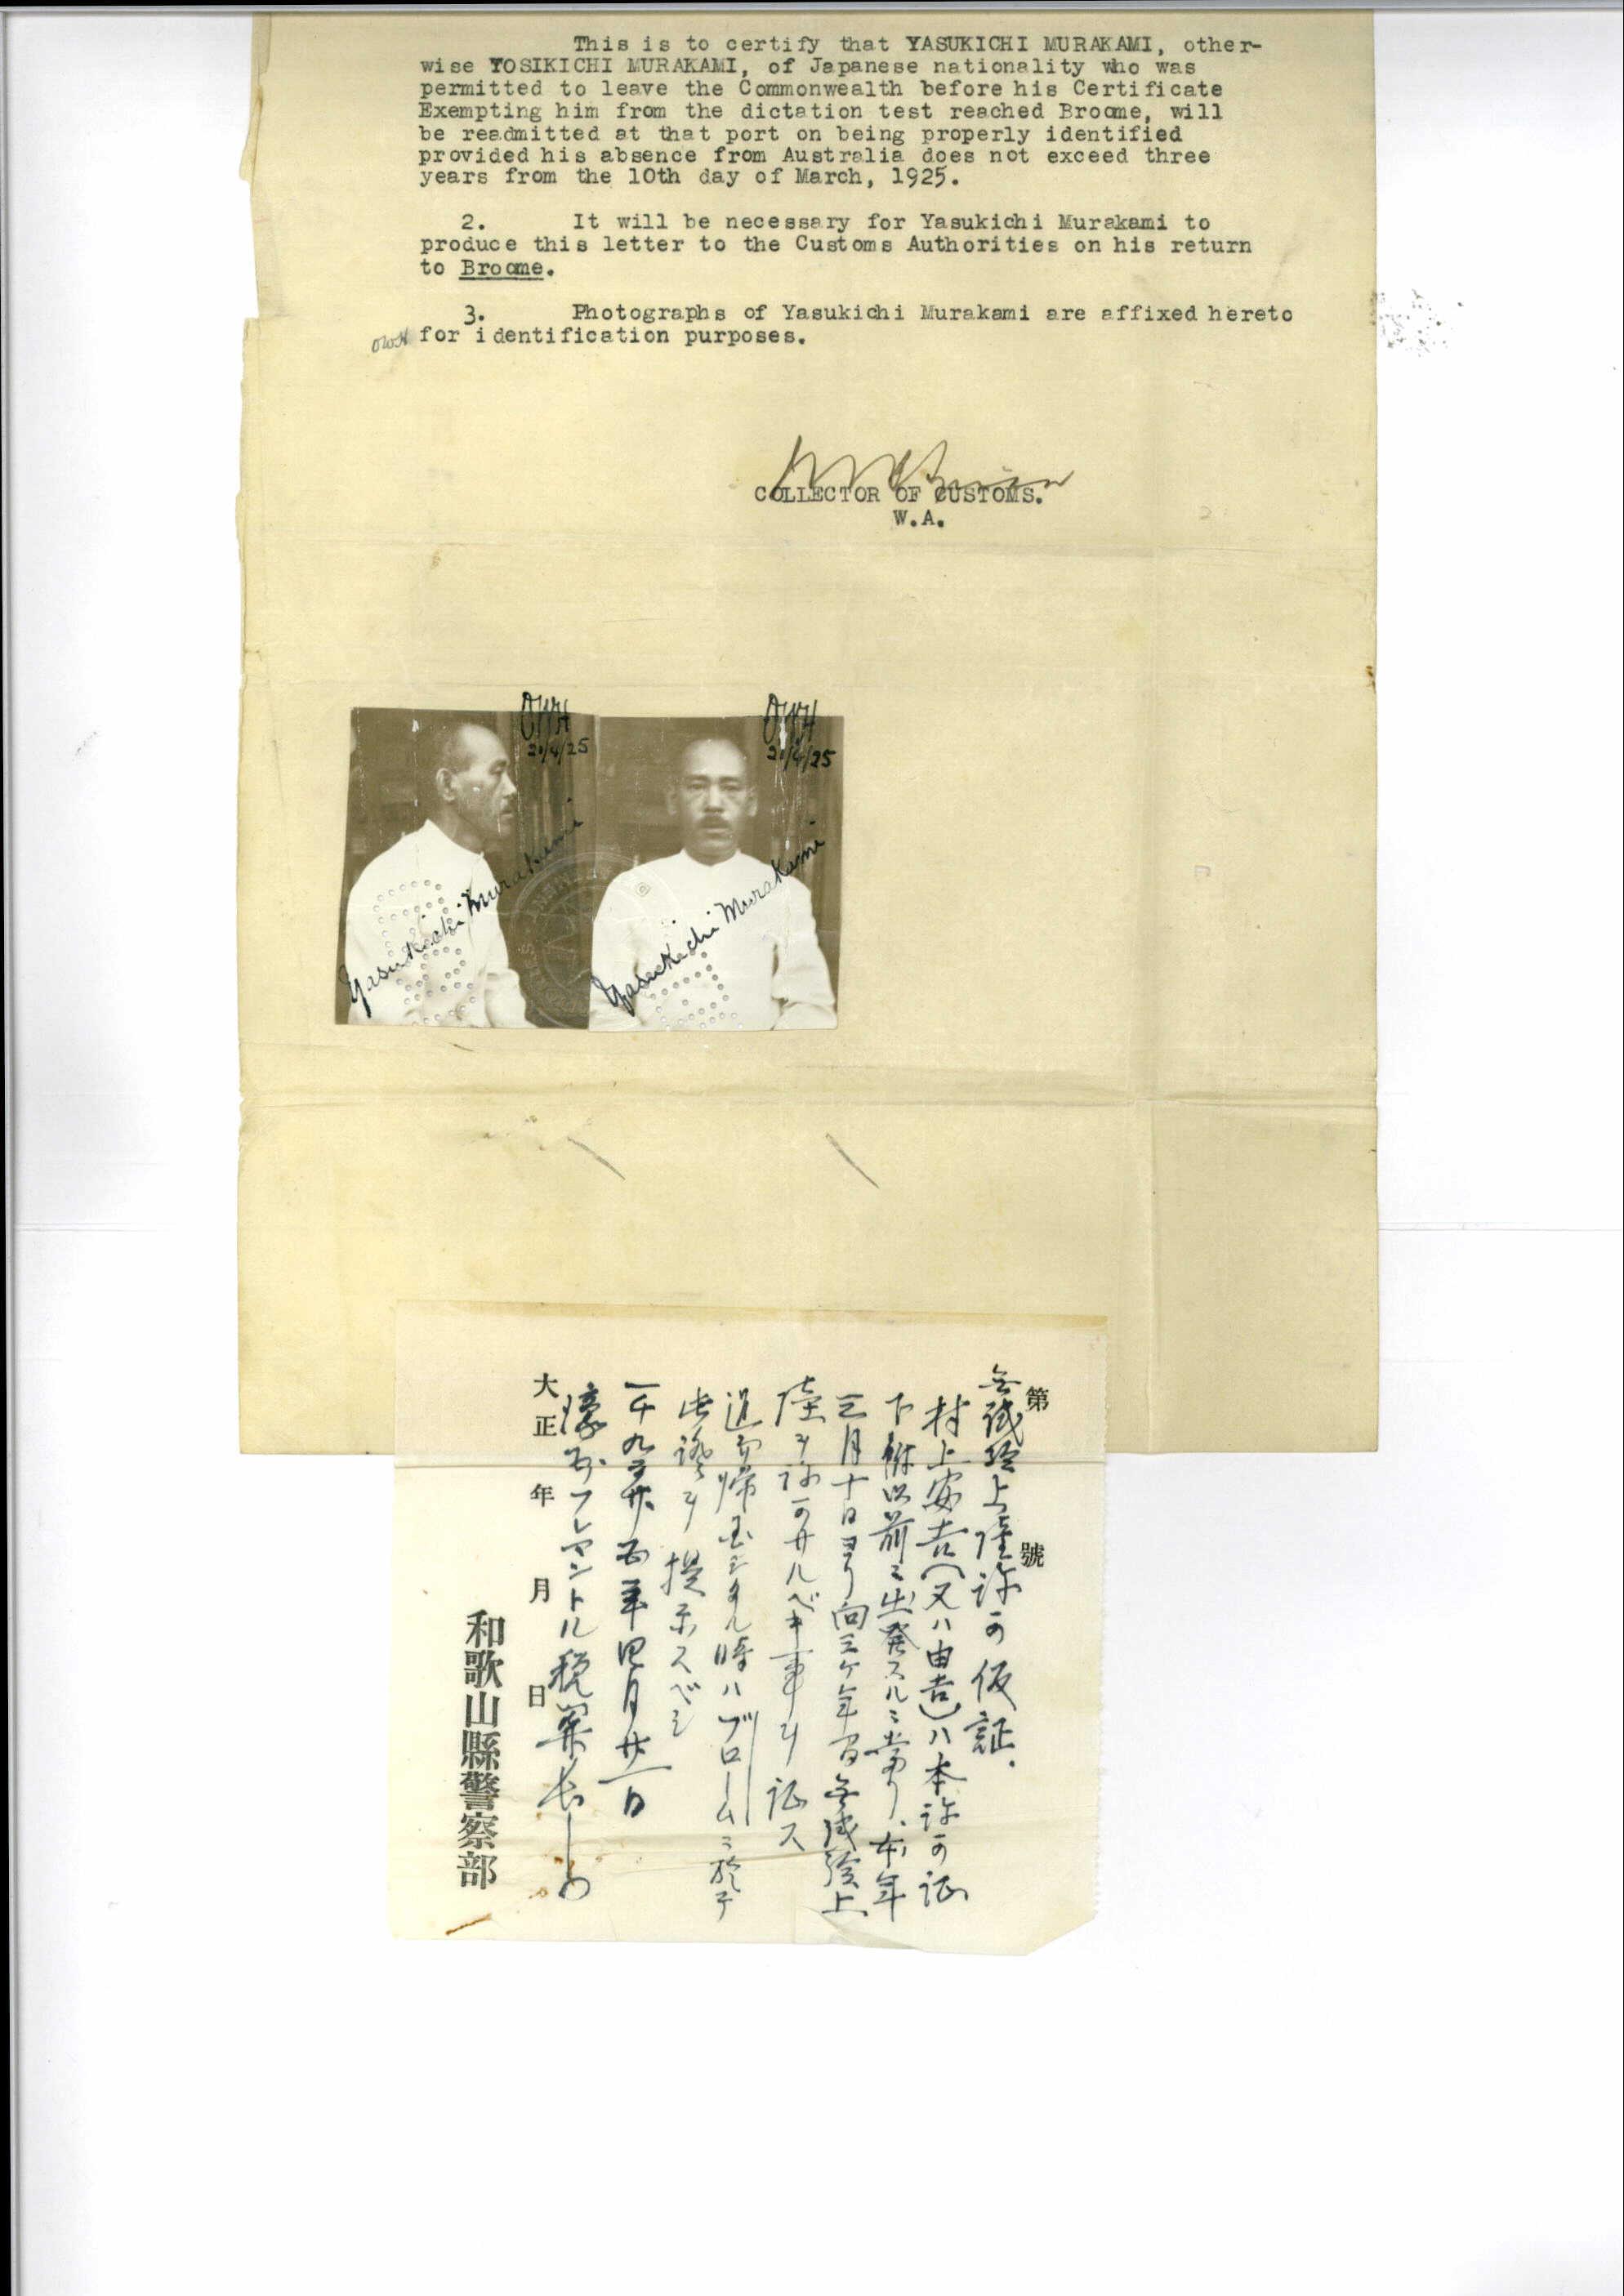 This is to certify that YASUKICHI MURAKAMI, other-
wise YOSIKICHI MURAKAMI, of Japanese nationality who was
permitted to leave the Commonwealth before his Certificate
Exempting him from the dictation test reached Broome, will
be readmitted at that port on being properly identified
provided his absence from Australia does not exceed three
years from the 10th day of March, 1925.
2. It will be necessary for Yasukichi Murakami to
produce this letter to the Customs Authorities on his return
to Broome.
3. Photographs of Yasukichi Murakami are affixed hereto
OWH for identification purposes.
COLLECTOR OF CUSTOMS.
W.A.
OWH
21/4/25
OWH
21/4/25
Yasukichi Murakami
Yasukichi Murakami
第 號
無試験上陸許可仮証.
村上安吉(又ハ由吉)ハ本許可証
下附以前ニ出発スルニ当リ、本年
三月十日ヨリ向三ケ年間無試験上
陸ヲ許可サルベキ事ヲ証ス
追而帰国シタル時ハブロームニ於テ
此證ヲ提示スベシ
一千九百廿五年四月廿一日
濠州フレマントル税関長
大正 年 月 日
和歌山縣警察部